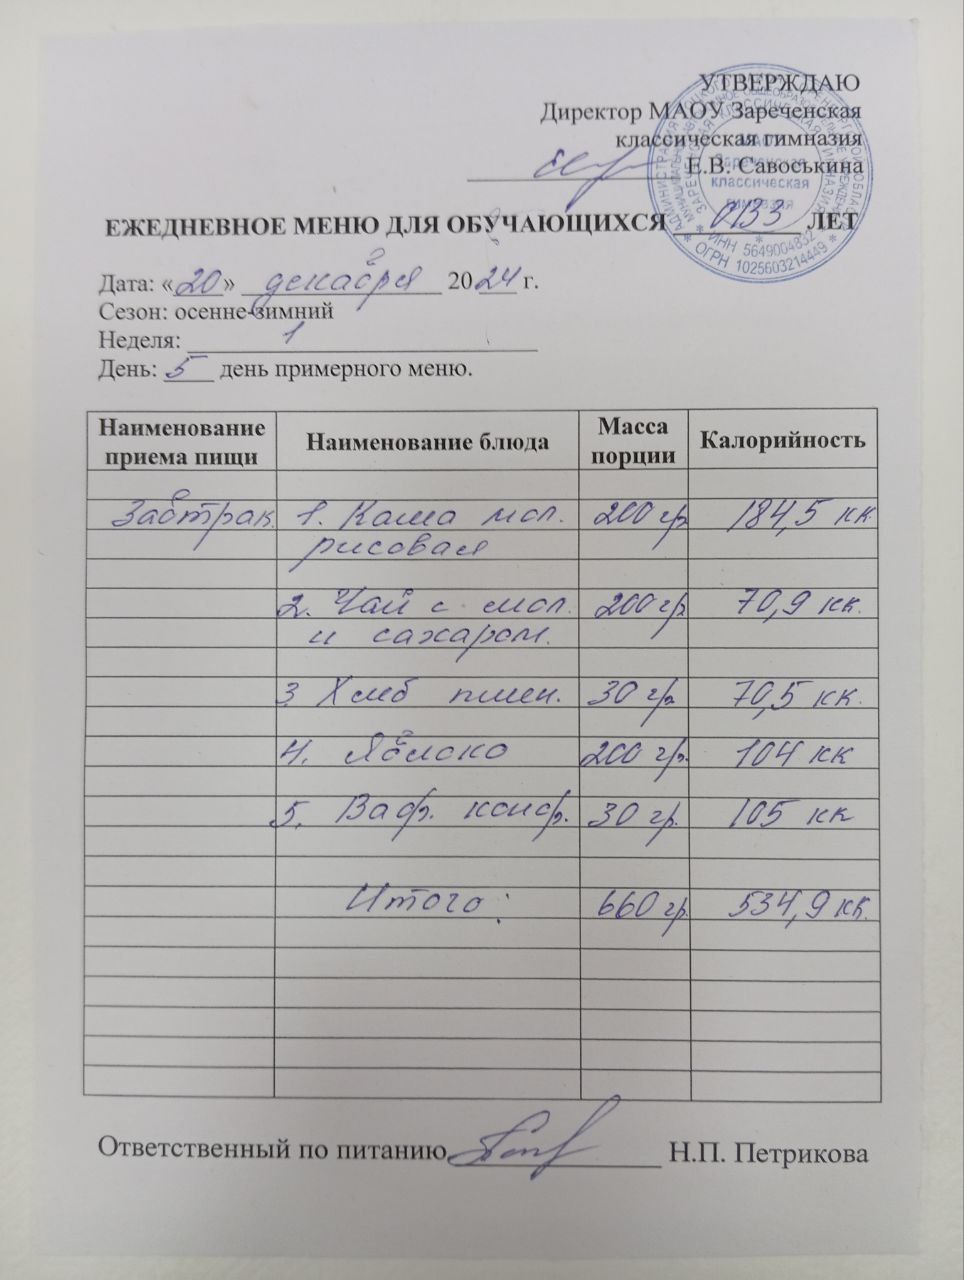 УТВЕРЖДАЮ
Директор МАОУ Зареченская
классическая гимназия
Е.В. Савоськина
МАОУ
Зареченская
классическая
гимназия
ИНН 5649004832
ОГРН 1025603214449
ЕЖЕДНЕВНОЕ МЕНЮ ДЛЯ ОБУЧАЮЩИХСЯ ОВЗ ЛЕТ
Дата: «20» декабря 2024 г.
Сезон: осенне-зимний
Неделя: 1
День: 5 день примерного меню.
Наименование приема пищи Наименование блюда Масса порции Калорийность
Завтрак 1. Каша мол. 200 гр 184,5 кк
рисовая
2. Чай с мол. 200 гр 70,9 кк.
и сахаром.
3 Хлеб пшен. 30 гр 70,5 кк.
4. Яблоко 200 гр. 104 кк
5. Ваф. конф. 30 гр. 105 кк
Итого: 660 гр. 534,9 кк.
Ответственный по питанию Н.П. Петрикова